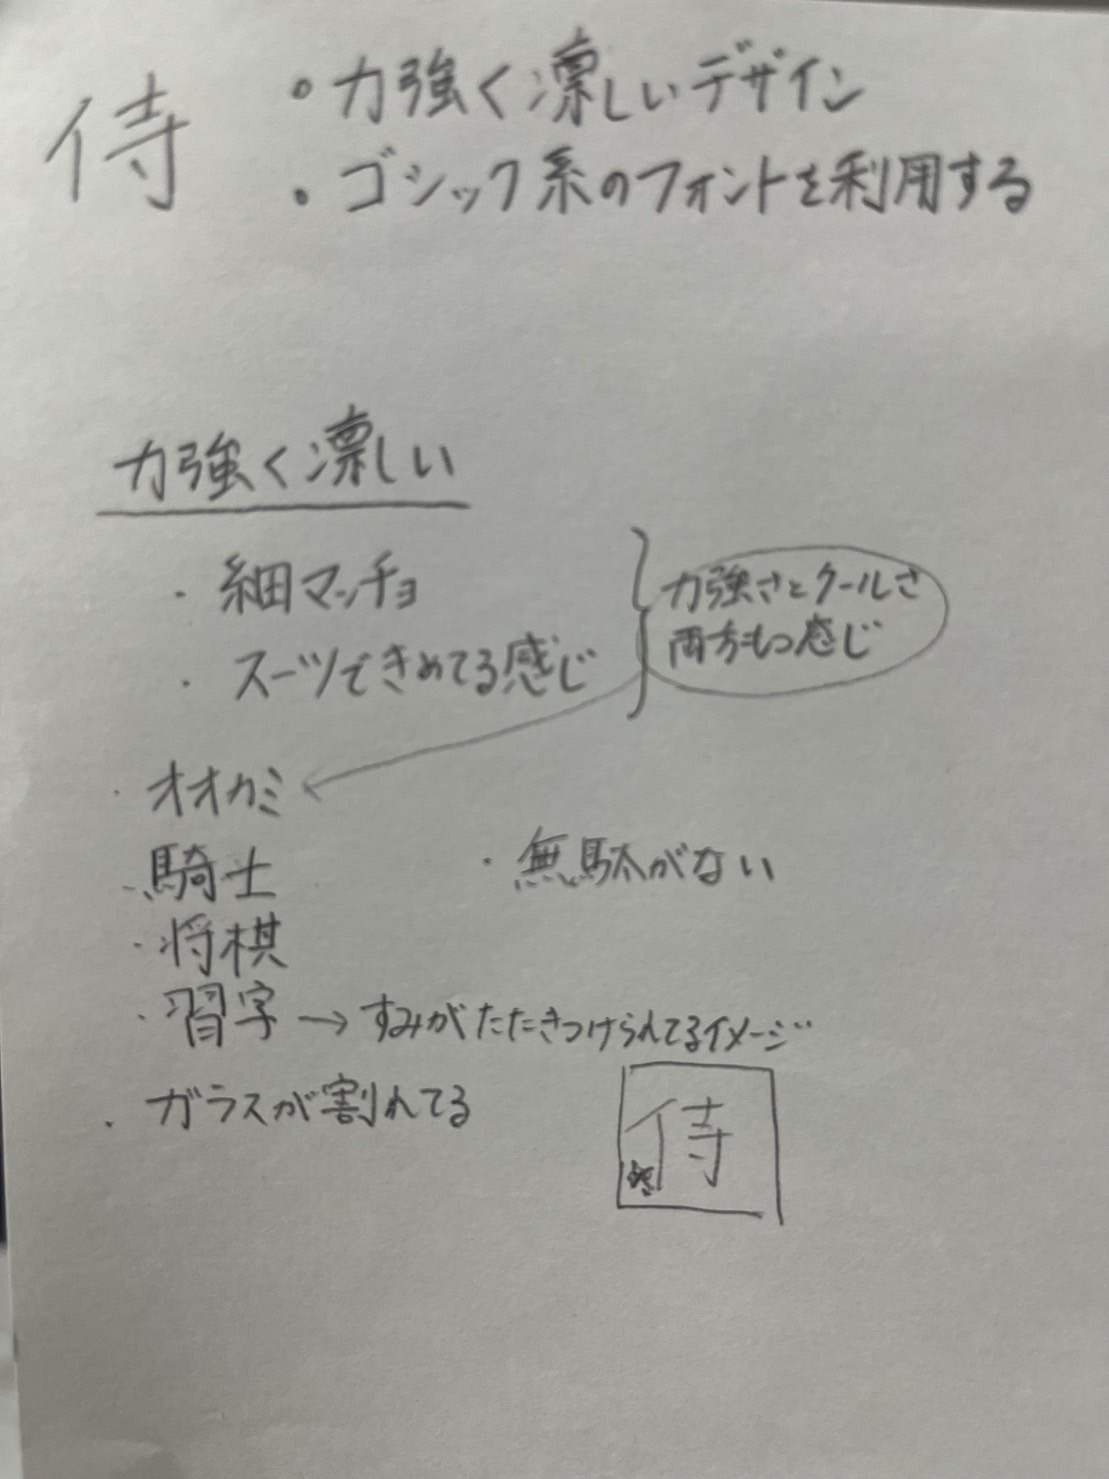 侍
・力強く凛しいデザイン
・ゴシック系のフォントを利用する
力強く凛しい
・細マッチョ
・スーツできめてる感じ
力強さとクールさ
両方もつ感じ
・オオカミ
・騎士
・無駄がない
・将棋
・習字→すみがたたきつけられてるイメージ
・ガラスが割れてる
侍